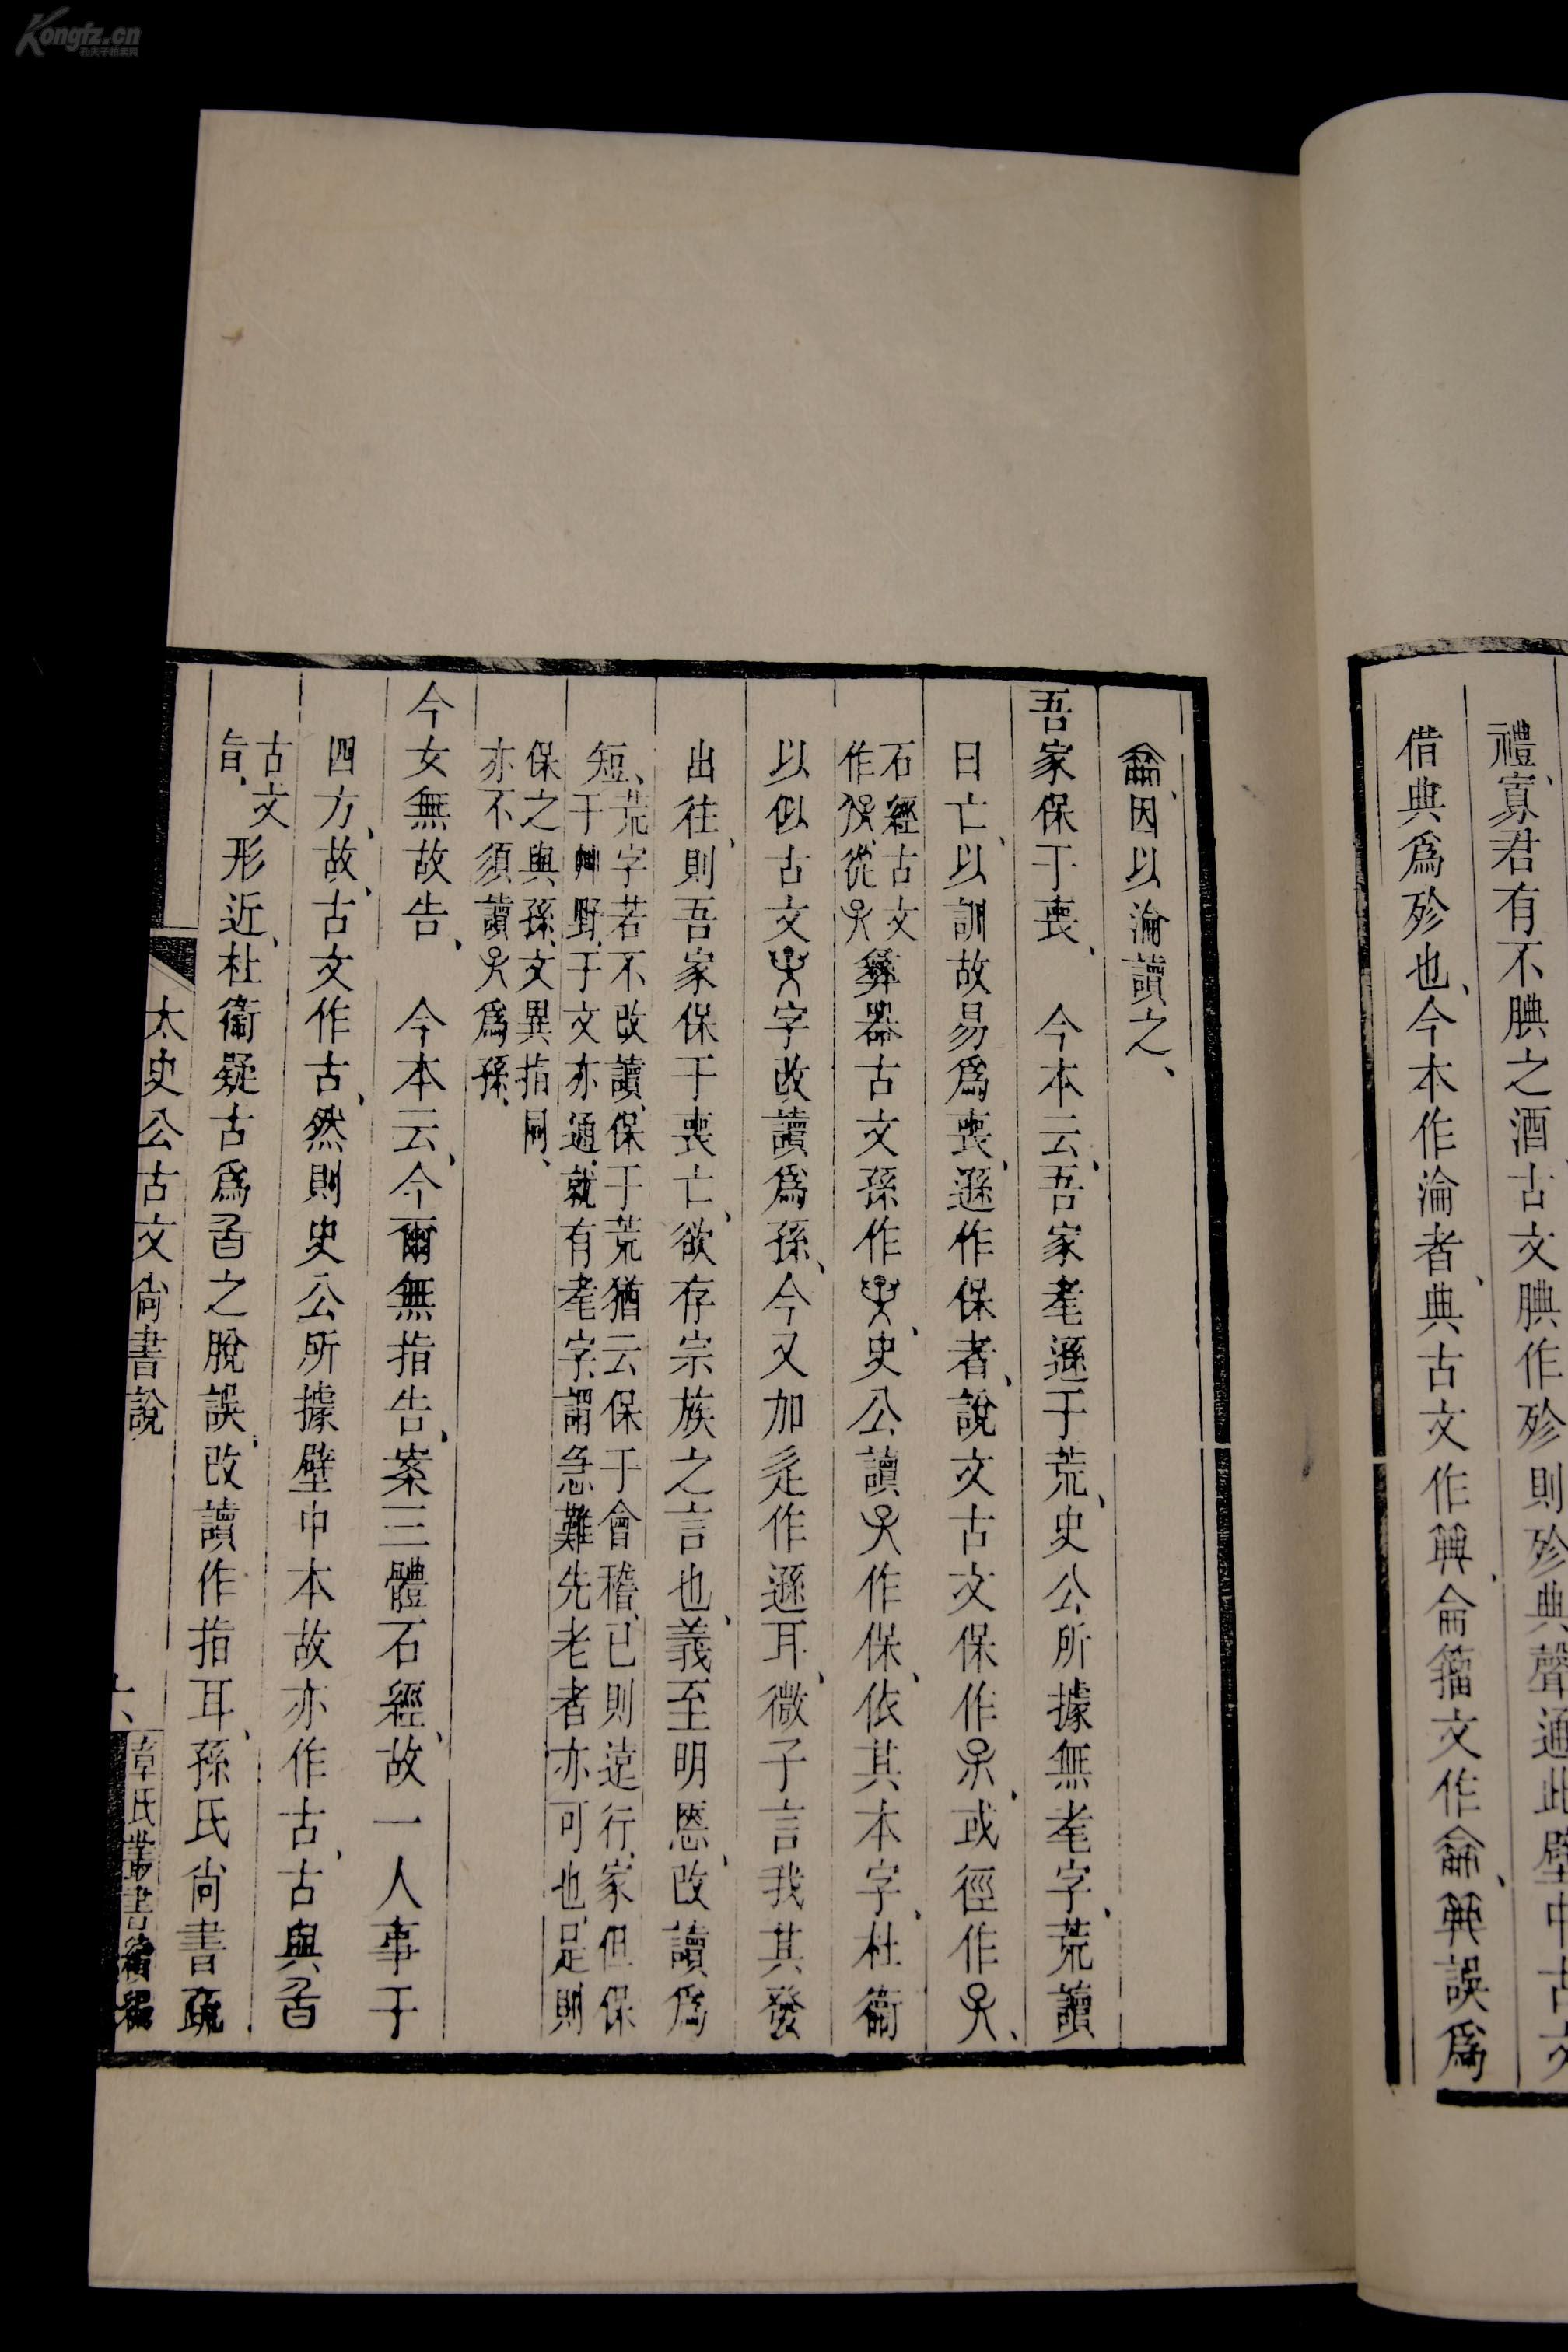 禮、寡君有不腆之酒古文腆作殄則殄典聲通此壁中古文
借典爲殄也、今本作淪者、典古文作籅侖籀文作龠籅誤爲
龠、因以淪讀之、
吾家保于喪、　今本云、吾家耄遜于荒、史公所據無耄字、荒讀
曰亡、以訓故易爲喪、遜作保者、說文古文保作𠈃、或徑作𠈃、
石經古文
作𠈃、從
彝器古文孫作、史公讀作保、依其本字、杜衞
以似古文字改讀爲孫、今又加辵作遜耳、微子言我其發
出往、則吾家保于喪亡、欲存宗族之言也、義至明愍、改讀爲
荒字若不改讀、保于荒猶云保于會稽、已則遠行、家但保
短、于艸野、于文亦通、就有耄字、謂急難先老者亦可也、足則
保之與孫、文異指同、
亦不須讀爲孫、
今女無故告、　今本云、今爾無指告、案三體石經、故一人事于
四方、故、古文作古、然則史公所據壁中本故亦作古、古與𦤀
古文
旨、
形近、杜衞疑古爲𦤀之脫誤、改讀作指耳、孫氏尙書疏
太史公古文尙書說
章氏叢書續編
Kongfz.cn
孔夫子拍卖网